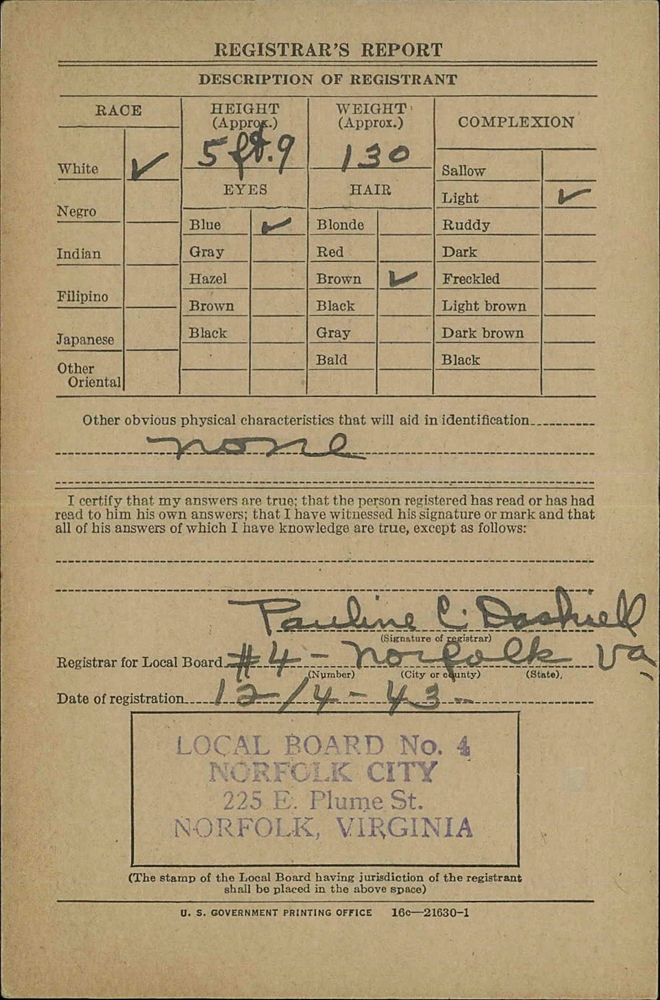 REGISTRAR'S REPORT
DESCRIPTION OF REGISTRANT
RACE
HEIGHT
(Approx.)
WEIGHT
(Approx.)
COMPLEXION
5 ft. 9
130
White ✓
EYES
HAIR
Sallow
Light ✓
Negro
Blue ✓
Blonde
Ruddy
Indian
Gray
Red
Dark
Hazel
Brown ✓
Freckled
Filipino
Brown
Black
Light brown
Japanese
Black
Gray
Dark brown
Other
Oriental
Bald
Black
Other obvious physical characteristics that will aid in identification
none
I certify that my answers are true; that the person registered has read or has had
read to him his own answers; that I have witnessed his signature or mark and that
all of his answers of which I have knowledge are true, except as follows:
Pauline C. Dashiell
(Signature of registrar)
Registrar for Local Board #4 - Norfolk Va
(Number) (City or county) (State),
Date of registration 12/4-43
LOCAL BOARD No. 4
NORFOLK CITY
225 E. Plume St.
NORFOLK, VIRGINIA
(The stamp of the Local Board having jurisdiction of the registrant
shall be placed in the above space)
U. S. GOVERNMENT PRINTING OFFICE 16c—21630-1